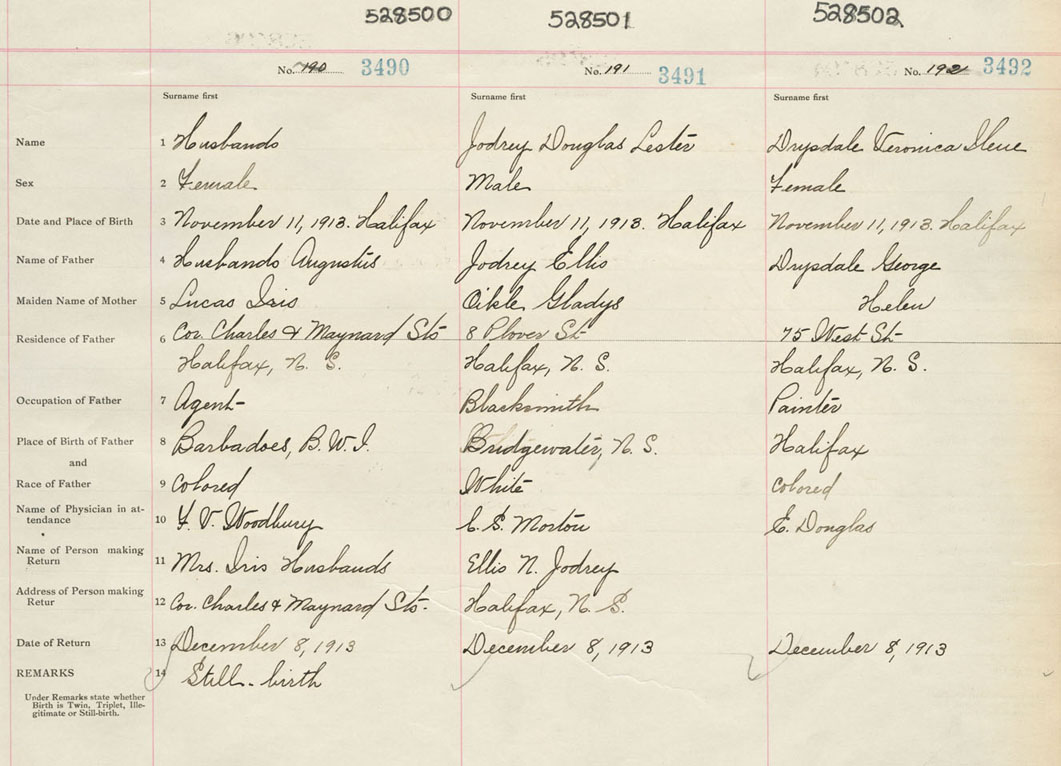 528500 528501 528502
No. 190 3490 No. 191 3491 No. 192 3492
Surname first Surname first Surname first
Name 1 Husbands Jodrey Douglas Lester Drysdale Veronica Ilene
Sex 2 Female Male Female
Date and Place of Birth 3 November 11, 1913. Halifax November 11, 1913. Halifax November 11, 1913. Halifax
Name of Father 4 Husbands Augustus Jodrey Ellis Drysdale George
Maiden Name of Mother 5 Lucas Iris Oikle Gladys Helen
Residence of Father 6 Cor. Charles & Maynard Sts 8 Plover St 75 West St
Halifax, N. S. Halifax, N. S. Halifax, N. S.
Occupation of Father 7 Agent Blacksmith Painter
Place of Birth of Father 8 Barbadoes, B. W. I. Bridgewater, N. S. Halifax
and
Race of Father 9 Colored White Colored
Name of Physician in at-
tendance 10 F. V. Woodbury C. S. Morton E. Douglas
Name of Person making
Return 11 Mrs. Iris Husbands Ellis N. Jodrey
Address of Person making
Retur 12 Cor. Charles & Maynard Sts. Halifax, N. S.
Date of Return 13 December 8, 1913 December 8, 1913 December 8, 1913
REMARKS 14 Still-birth
Under Remarks state whether
Birth is Twin, Triplet, Ille-
gitimate or Still-birth.